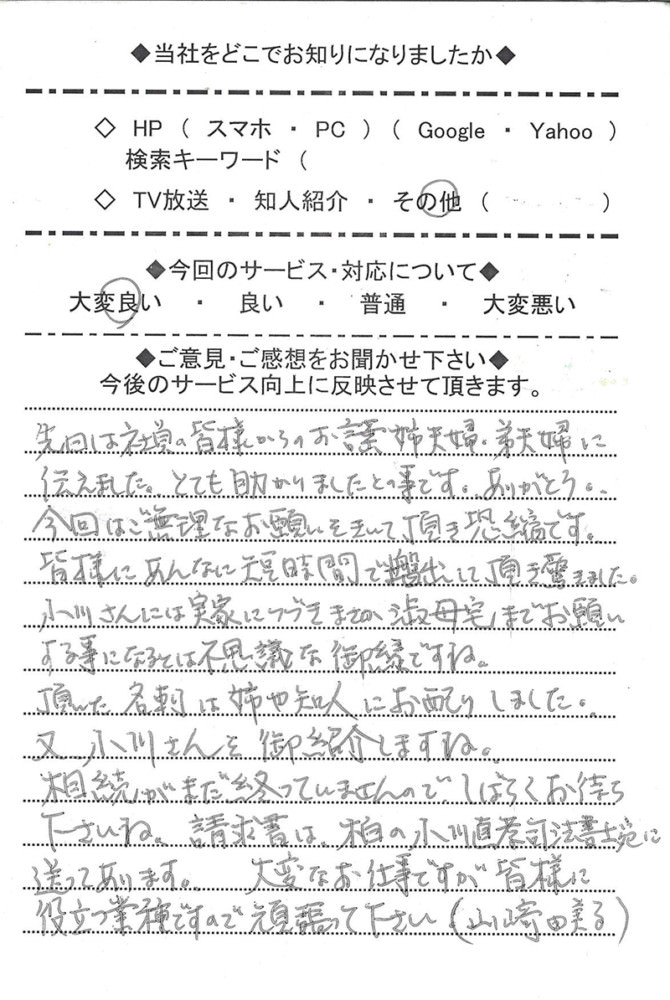 ◆当社をどこでお知りになりましたか◆
◇ HP ( スマホ ・ PC ) ( Google ・ Yahoo )
検索キーワード (
◇ TV放送 ・ 知人紹介 ・ その他 ( )
◆今回のサービス・対応について◆
大変良い ・ 良い ・ 普通 ・ 大変悪い
◆ご意見・ご感想をお聞かせ下さい◆
今後のサービス向上に反映させて頂きます。
先日は社員の皆様からのお言葉姉夫婦・弟夫婦に
伝えました。とても助かりましたとの事です。ありがとう。
今回はご無理なお願いをきいて頂き恐縮です。
皆様にあんなに短時間で搬出して頂き驚きました。
小川さんには実家につづきまさか淑母宅までお願い
する事になるとは不思議な御縁ですね。
頂いた名刺は姉や知人にお配りしました。
又、小川さんを御紹介しますね。
相続がまだ終っていませんので、しばらくお待ち
下さいね。請求書は、柏の小川直孝司法書士宛に
送ってあります。 大変なお仕事ですが皆様に
役立つ業種ですので頑張って下さい(山崎由美る)